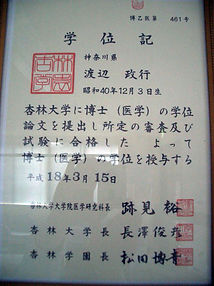 博乙医第 461号
学位記
神奈川県
渡辺 政行
昭和40年12月3日生
杏林大学に博士（医学）の学位
論文を提出し所定の審査及び
試験に合格した よって
博士（医学）の学位を授与する
平成18年3月15日
杏林大学大学院医学研究科長 跡見裕
杏林大学長 長澤俊彦
杏林学園長 松田博青